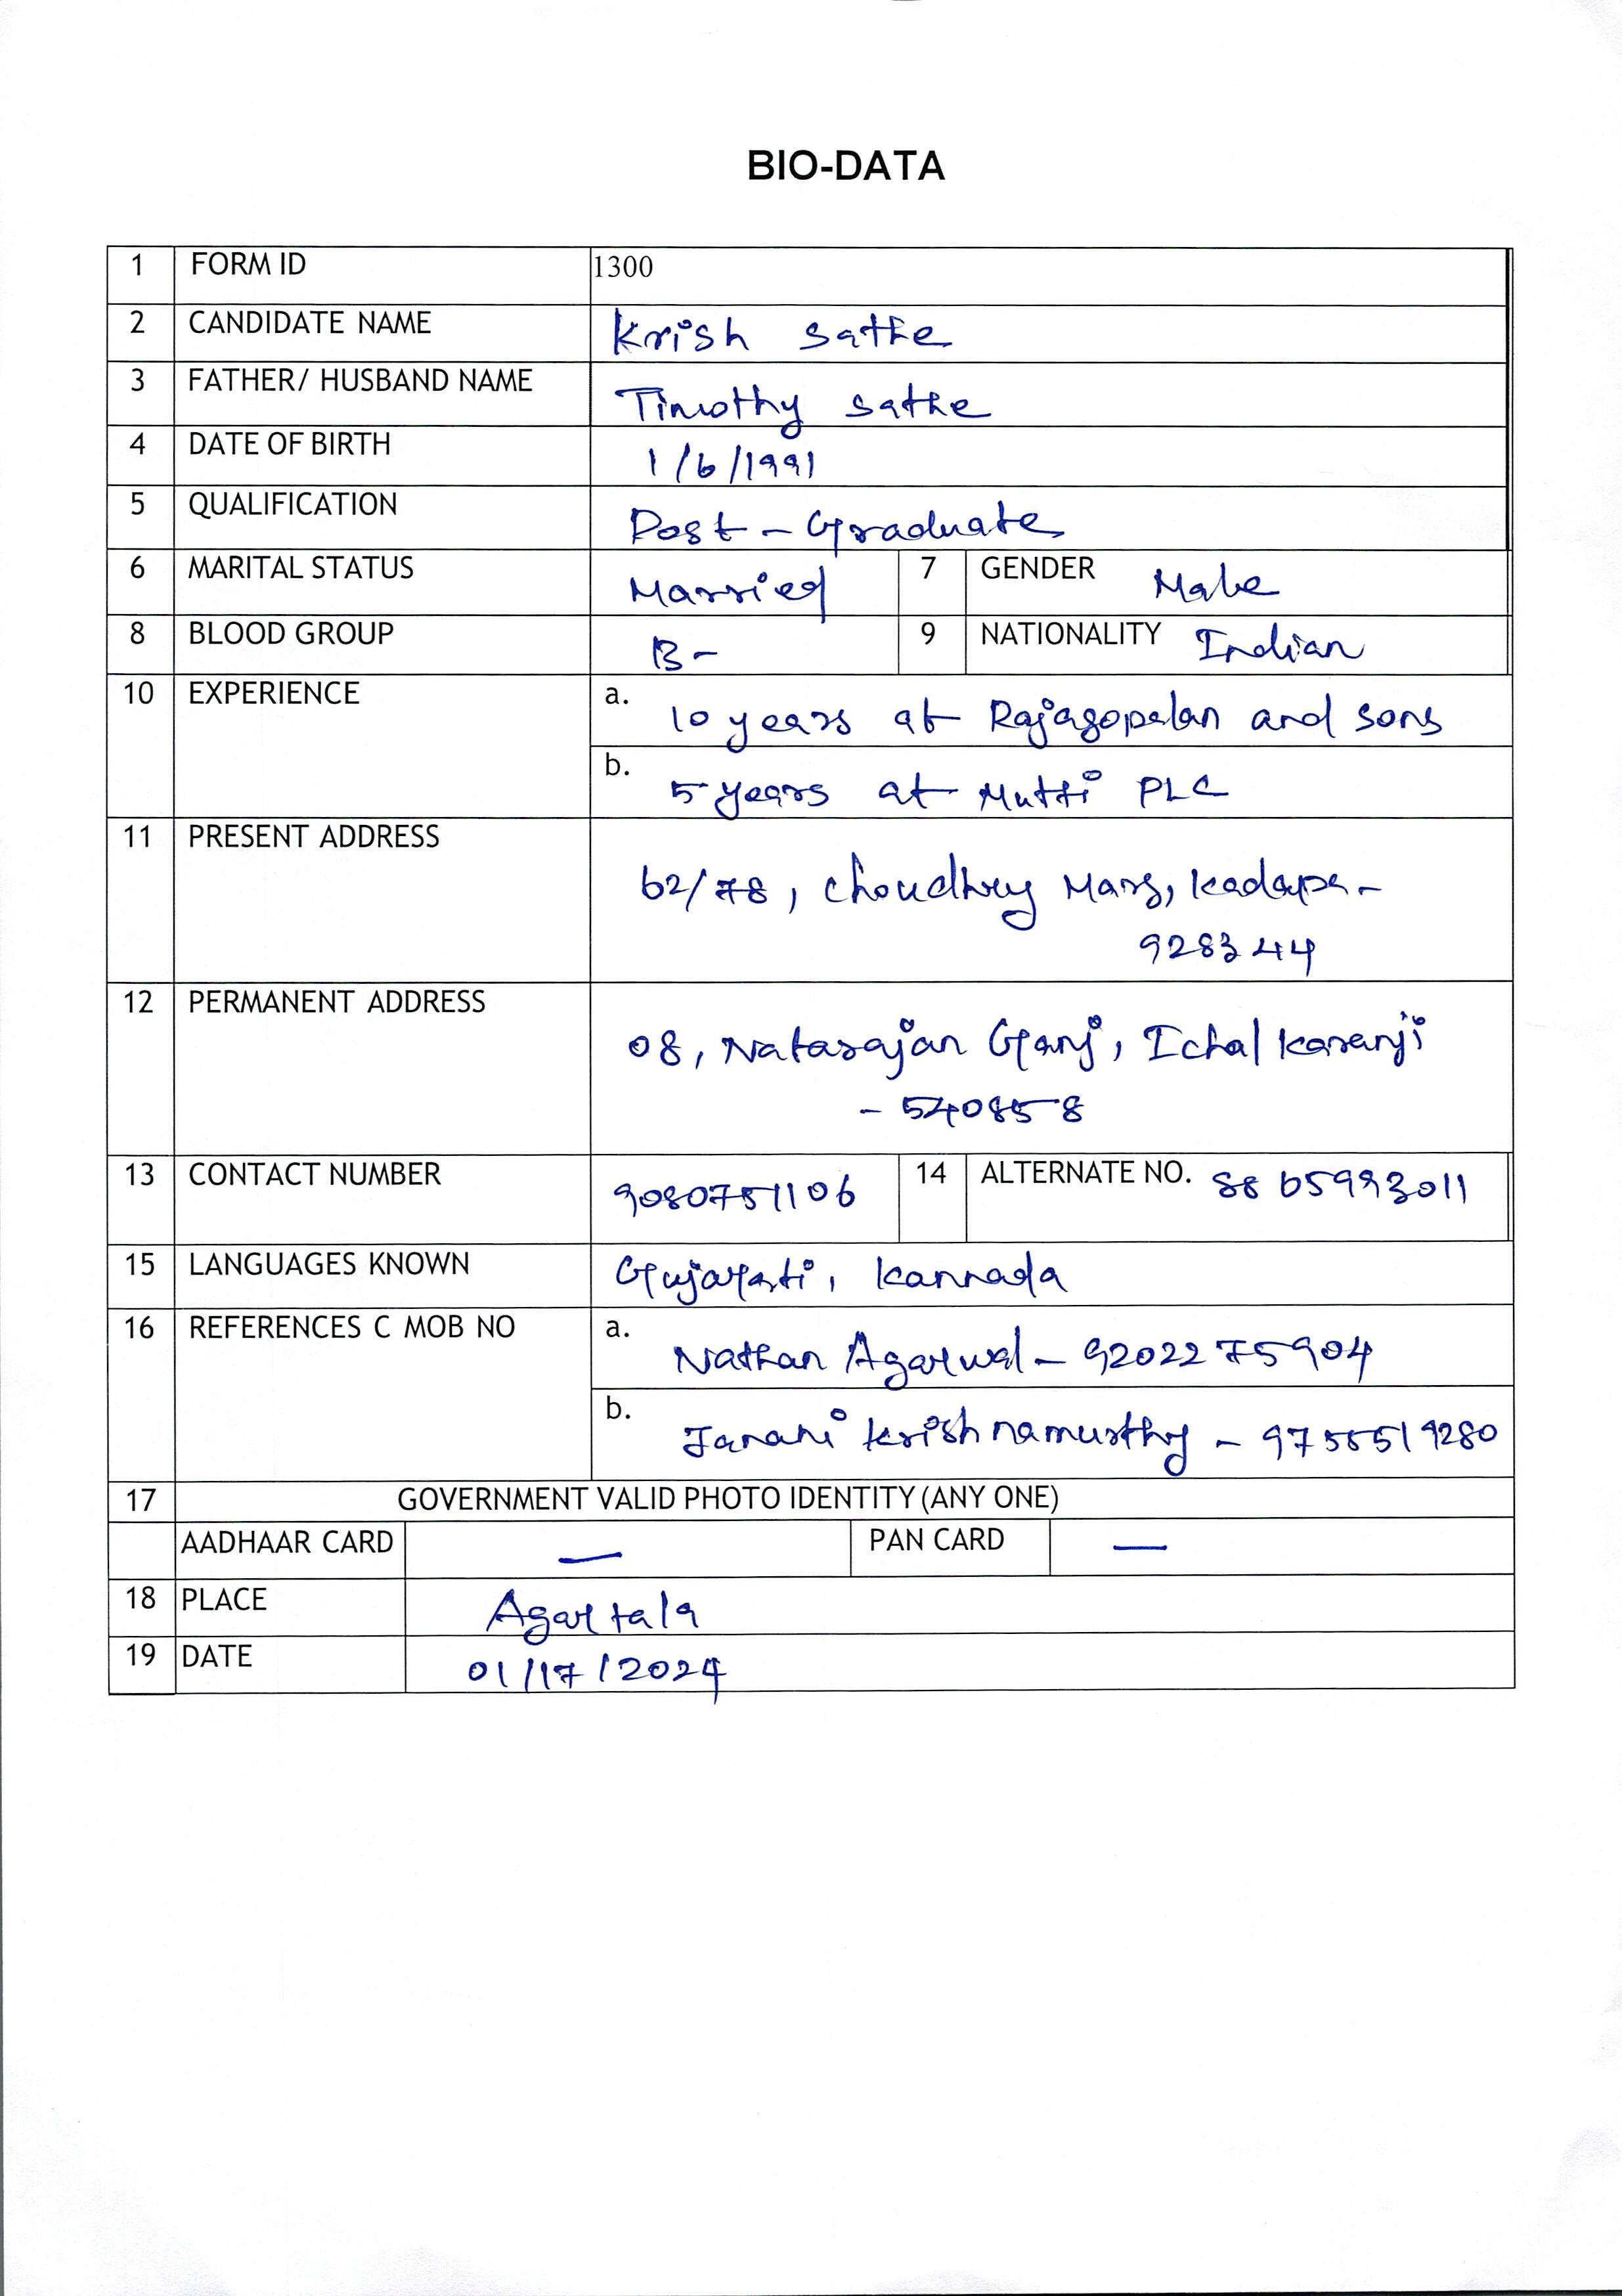 BIO-DATA
1 FORM ID 1300
2 CANDIDATE NAME Krish Sathe
3 FATHER/ HUSBAND NAME Timothy Sathe
4 DATE OF BIRTH 1/6/1991
5 QUALIFICATION Post-Graduate
6 MARITAL STATUS Married 7 GENDER Male
8 BLOOD GROUP B- 9 NATIONALITY Indian
10 EXPERIENCE a. 10 years at Rajagopalan and sons
b. 5 years at Mutti PLC
11 PRESENT ADDRESS
62/78, Choudhry Marg, Kadapa -
928344
12 PERMANENT ADDRESS
08, Natarajan Ganj, Ichalkaranji
- 540858
13 CONTACT NUMBER 9080751106 14 ALTERNATE NO. 8865993011
15 LANGUAGES KNOWN Gujarati, Kannada
16 REFERENCES C MOB NO a. Nathan Agarwal - 9202275904
b. Janani Krishnamurthy - 9755519280
17 GOVERNMENT VALID PHOTO IDENTITY (ANY ONE)
AADHAAR CARD — PAN CARD —
18 PLACE Agartala
19 DATE 01/17/2024